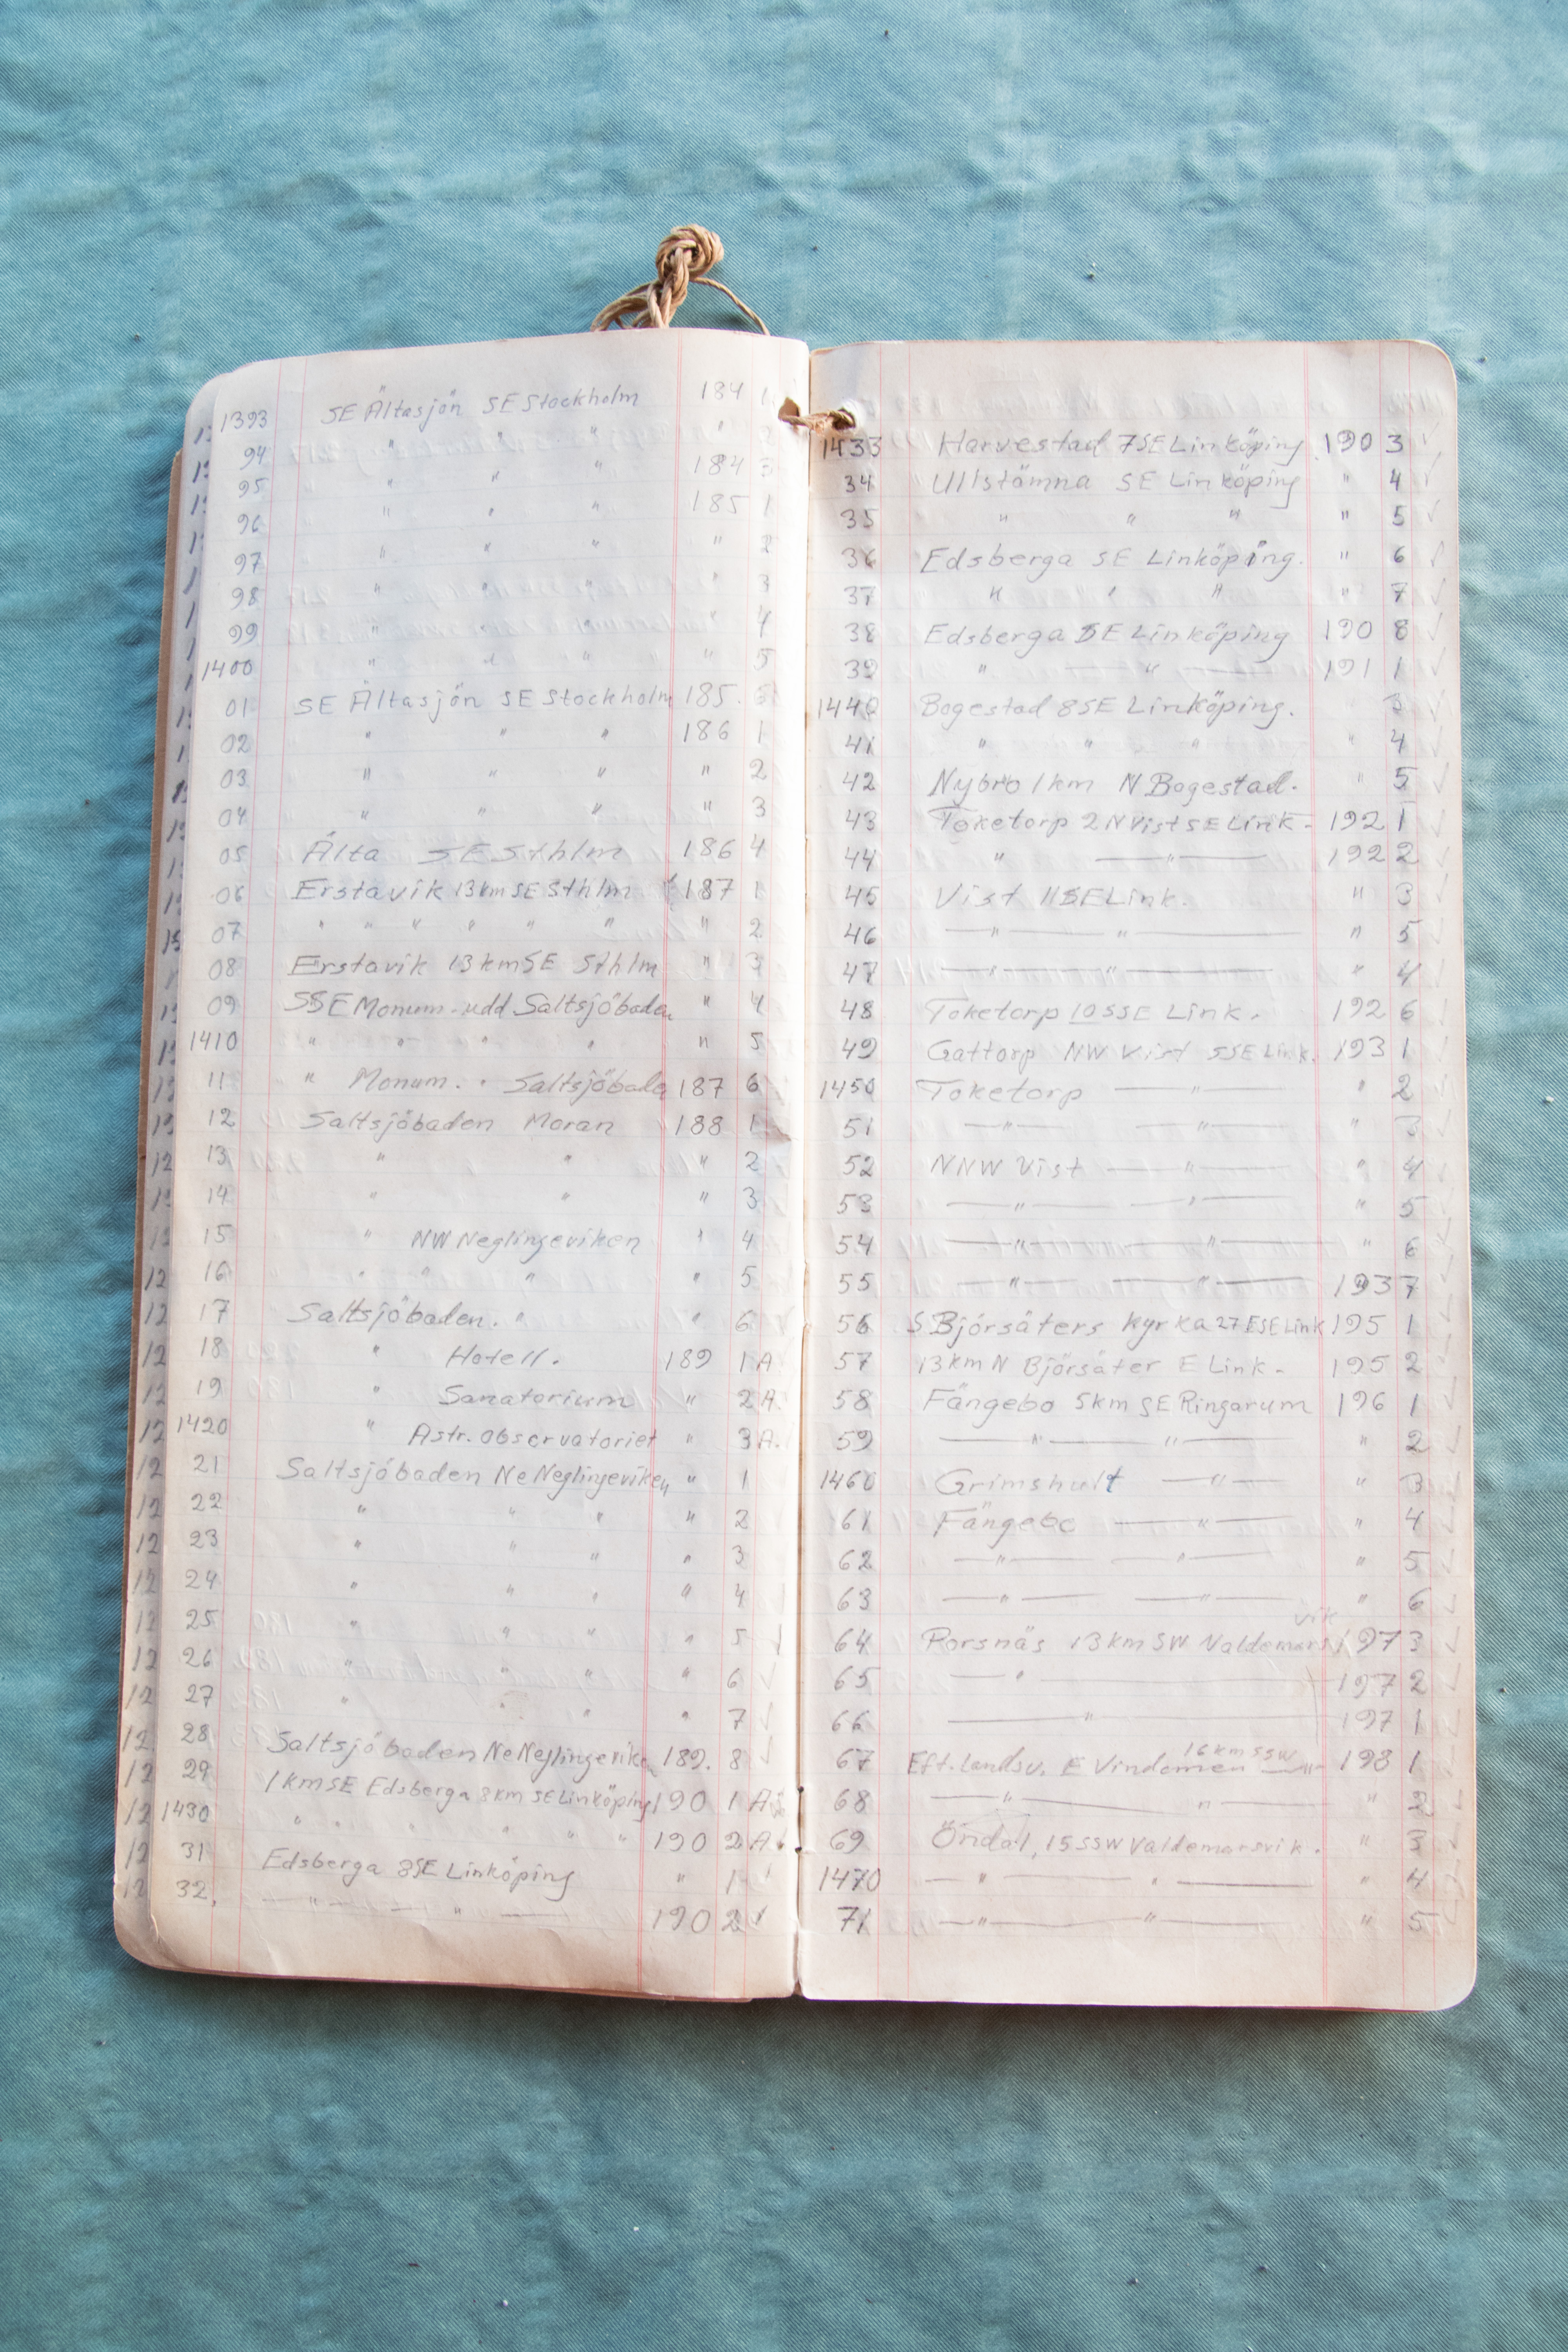 1393 SE Ältasjön SE Stockholm 184 1
94 " " " " 2
95 " " " 184 3
96 " " " 185 1
97 " " " " 2
98 " " " " 3
99 " " " " 4
1400 " " " " 5
01 SE Ältasjön SE Stockholm 185.
02 " " " 186 1
03 " " " " 2
04 " " " " 3
05 Älta SE Sthlm 186 4
06 Erstavik 13 km SE Sthlm 187 1
07 " " " " " " " 2
08 Erstavik 13 km SE Sthlm " 3
09 SSE Monum.-udd Saltsjöbaden " 4
1410 " " " " " 5
11 " Monum. " Saltsjöbade 187 6
12 Saltsjöbaden Moran 188 1
13 " " " 2
14 " " " 3
15 " NW Neglingeviken " 4
16 " " " " 5
17 Saltsjöbaden. " " 6
18 " Hotell. 189 1 A
19 " Sanatorium " 2 A.
1420 " Astr. observatoriet " 3 A.
21 Saltsjöbaden Ne Neglingeviken " 1
22 " " " " 2
23 " " " " 3
24 " " " " 4
25 " " " " 5 ✓
26 " " " " 6 ✓
27 " " " " 7 ✓
28 Saltsjöbaden Ne Neglingevike 189. 8 ✓
29 1 km SE Edsberga 8 km SE Linköping 190 1 A
1430 " " " " " " 190 2 A
31 Edsberga 8 SE Linköping " 1 ✓
32, — " — " — 190 2 ✓
1433 Harvestad 7 SE Linköping 190 3 ✓
34 Ullstämna SE Linköping " 4 ✓
35 " " " " 5 ✓
36 Edsberga SE Linköping. " 6 ✓
37 " " " " 7 ✓
38 Edsberga SE Linköping 190 8 ✓
39 " — " — 191 1 ✓
1440 Bogestad 8 SE Linköping. 3 ✓
41 " " " " 4 ✓
42 Nybro 1 km N Bogestad. " 5 ✓
43 Toketorp 2 N Vist SE Link. 192 1 ✓
44 " — " — 192 2 ✓
45 Vist 11 SE Link. " 3 ✓
46 — " — " — " 5 ✓
47 — " — " — " 4 ✓
48 Toketorp 10 SSE Link. 192 6 ✓
49 Gattorp NW Vist SSE Link. 193 1 ✓
1450 Toketorp — " — " 2 ✓
51 — " — — " — " 3 ✓
52 NNW Vist — " — " 4 ✓
53 — " — — " — " 5 ✓
54 — " — — " — " 6 ✓
55 — " — — " — 193 7 ✓
56 S Björsäters kyrka 27 ESE Link 195 1 ✓
57 13 km N Björsäter E Link. 195 2 ✓
58 Fängebo 5 km SE Ringarum 196 1 ✓
59 — " — " — " 2 ✓
1460 Grimshult — " — " 3 ✓
61 Fängebo — " — " 4 ✓
62 — " — — " — " 5 ✓
63 — " — — " — " 6 ✓
64 Porsnäs 13 km SW Valdemarsvik 197 3 ✓
65 — " — 197 2 ✓
66 — " — 197 1 ✓
67 Eft. landsv. E Vindomen 16 km SSW — " — 198 1 ✓
68 — " — " — " 2 ✓
69 Öndal, 15 SSW Valdemarsvik. " 3 ✓
1470 — " — " — " 4 ✓
71 — " — " — " 5 ✓